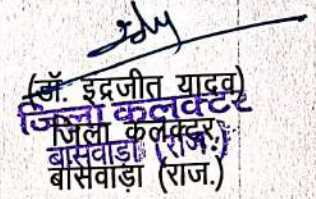 (डॉ. इंद्रजीत यादव)
जिला कलक्टर
जिला कलक्टर,
बांसवाड़ा (राज.)
बांसवाड़ा (राज.)